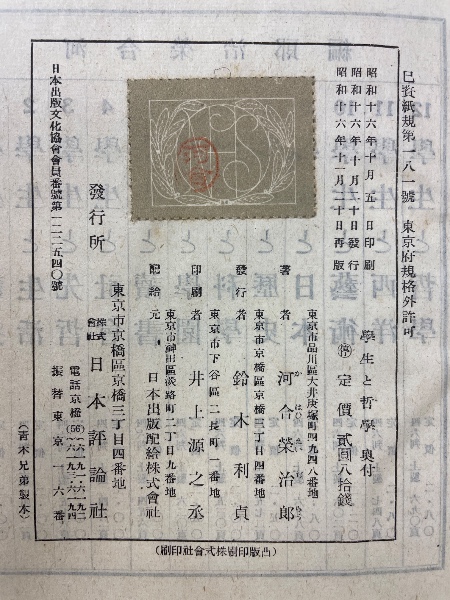 巳資紙規第一八一號　東京府規格外許可
學生と哲學 奧付
昭和十六年十月五日印刷
昭和十六年十月十日發行
昭和十六年十二月二十日再版
停 定價 貳圓八拾錢
東京市品川區大井庚塚町四九四八番地
著者　河合榮治郎
かはひえいぢらう
東京市京橋區京橋三丁目四番地
發行者　鈴木利貞
東京市下谷區二長町一番地
印刷者　井上源之丞
東京市神田區淡路町二丁目九番地
配給元　日本出版配給株式會社
東京市京橋區京橋三丁目四番地
發行所　株式會社 日本評論社
振替東京一六番
日本出版文化協會會員番號第一一二五四〇號
(靑木兄弟製本)
(凸版印刷株式會社印刷)